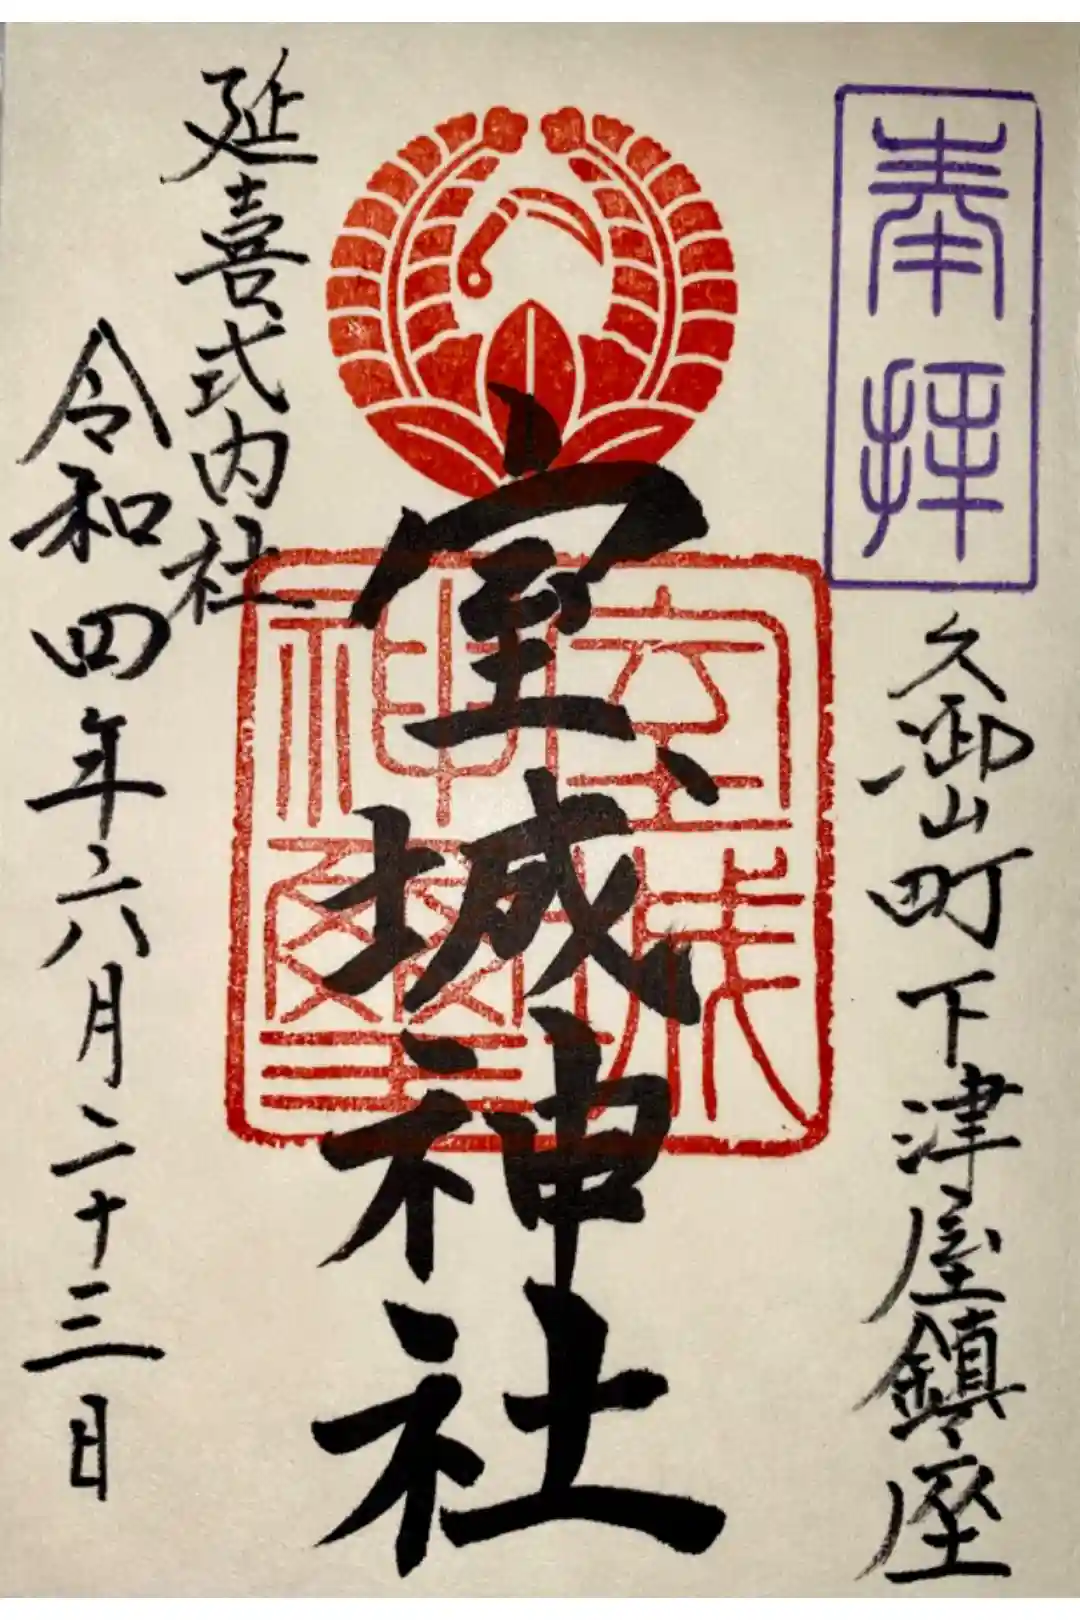 奉拝
久御山町下津屋鎮座
室城神社
室城
神璽
延喜式内社
令和四年六月二十三日